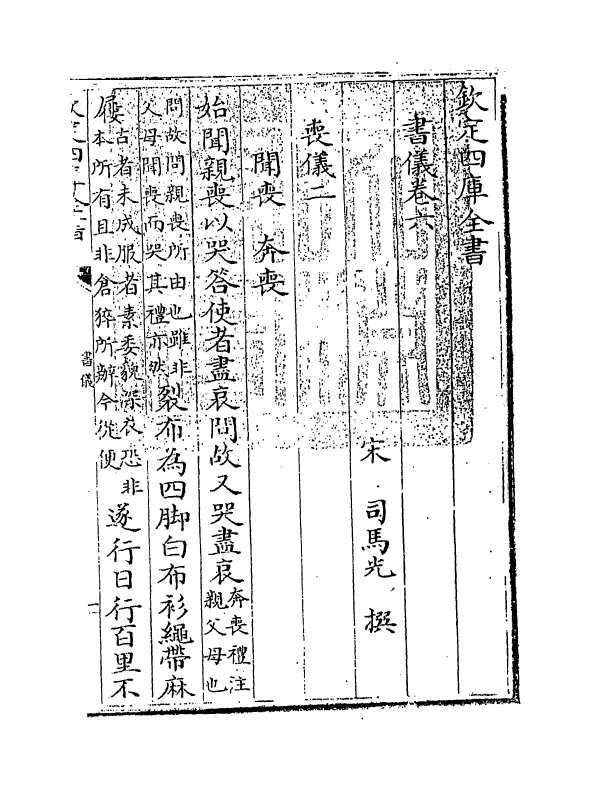 欽定四庫全書
書儀卷六
宋 司馬光 撰
喪儀二
聞喪 奔喪
始聞親喪以哭答使者盡哀問故又哭盡哀奔喪禮注親父母也
問故問親喪所由也雖非父母聞喪而哭其禮亦然裂布為四脚白布衫繩帶麻
屨古者未成服者素委貌深衣恐非本所有且非倉猝所辦今從便遂行日行百里不
書儀